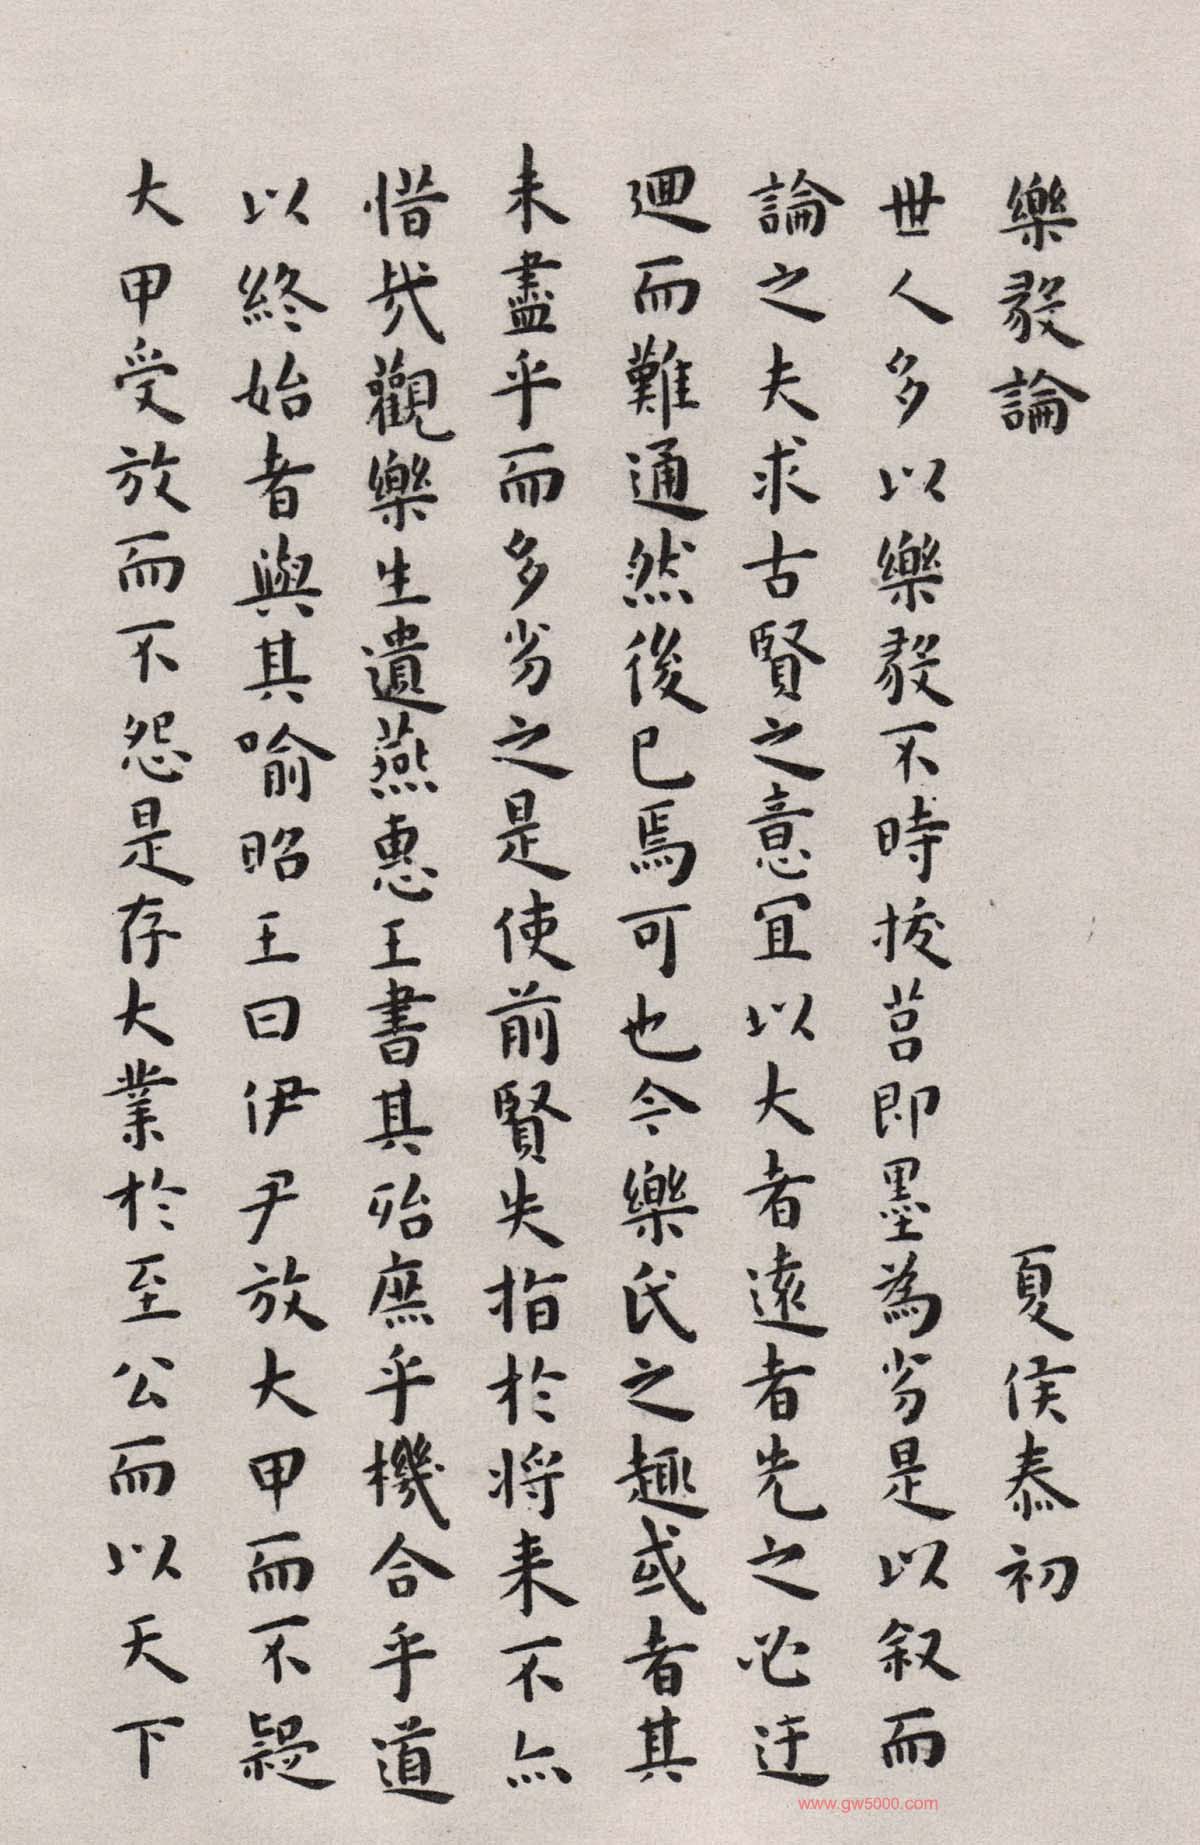 樂毅論 夏侯泰初
世人多以樂毅不時拔莒即墨為劣是以叙而
論之夫求古賢之意宜以大者遠者先之必迂
迴而難通然後已焉可也今樂氏之趣或者其
未盡乎而多劣之是使前賢失指於將来不亦
惜哉觀樂生遺燕惠王書其殆庶乎機合乎道
以終始者與其喻昭王曰伊尹放大甲而不疑
大甲受放而不怨是存大業於至公而以天下
www.gw5000.com